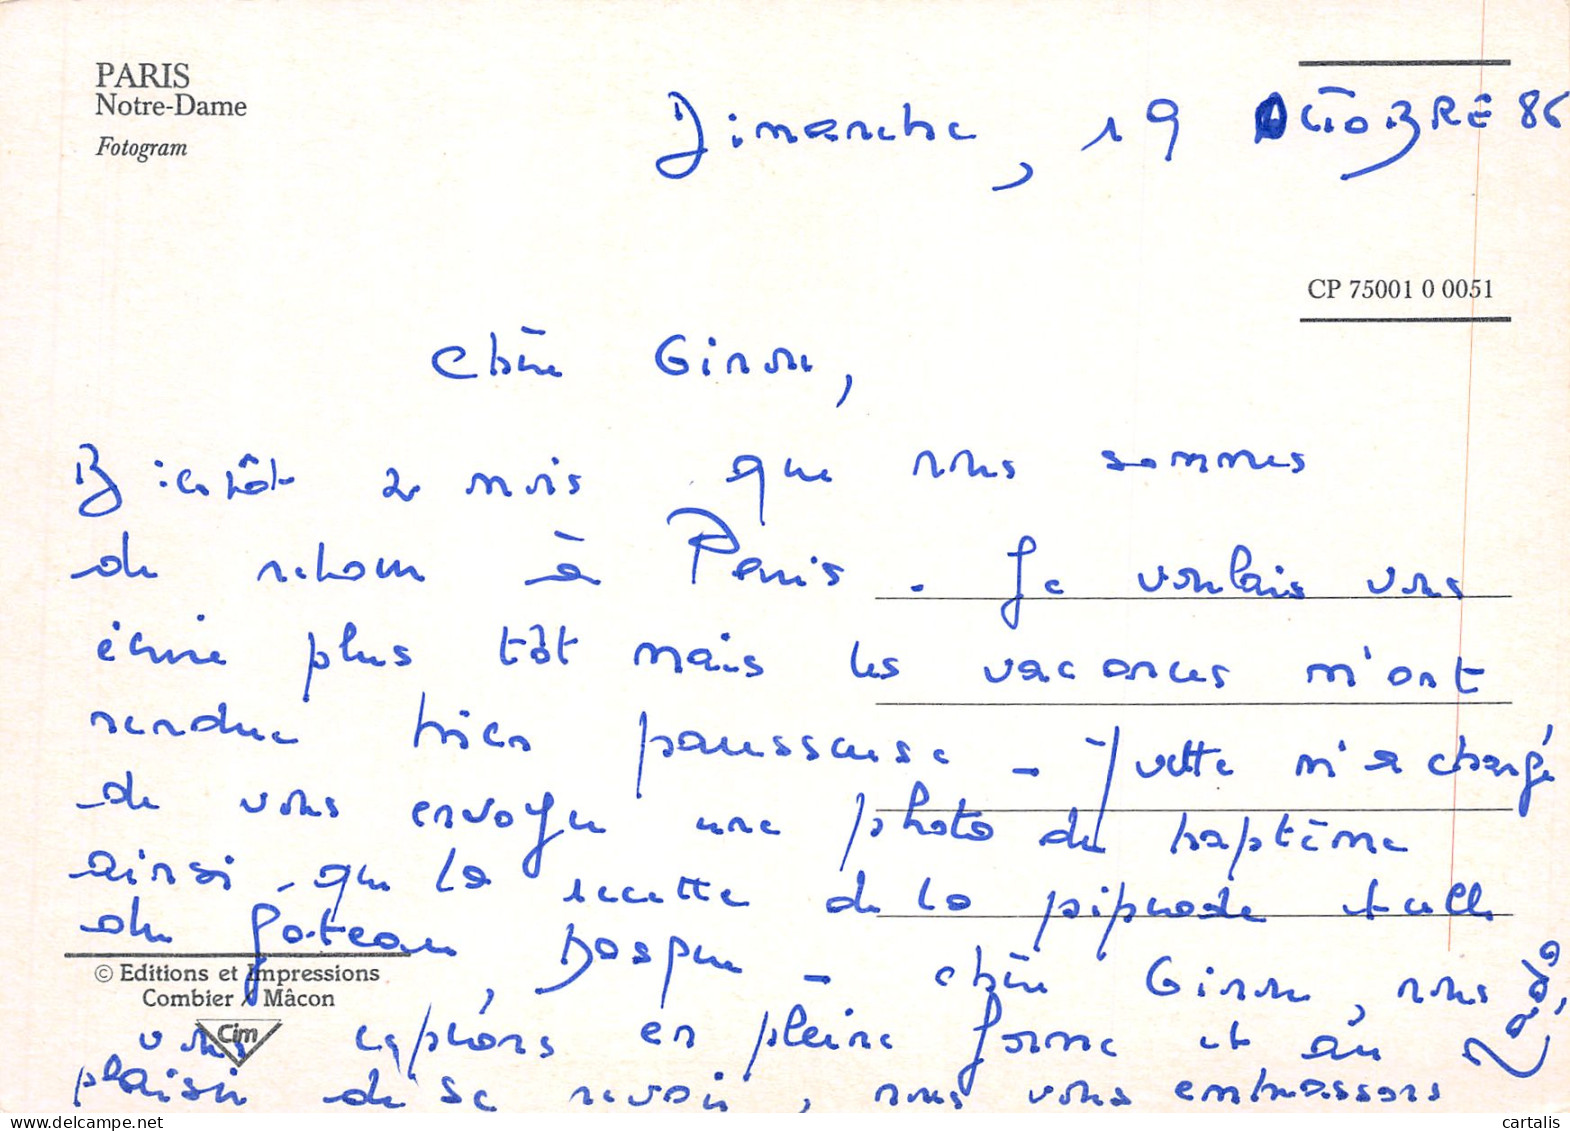 PARIS
Notre-Dame
Fotogram
Dimanche, 19 OCTOBRE 86
CP 75001 0 0051
Chère
Bientôt 2 mois que nous sommes
de retour à Paris. Je voulais vous
écrire plus tôt mais les vacances m'ont
rendue bien paresseuse - Yvette m'a chargé
de vous envoyer une photo du baptême
ainsi que la recette de la piperade et celle
du gâteau basque - chère, nous
© Editions et Impressions
Combier Mâcon
Cim
vous espérons en pleine forme et au
plaisir de se revoir, nous vous embrassons
cartalis